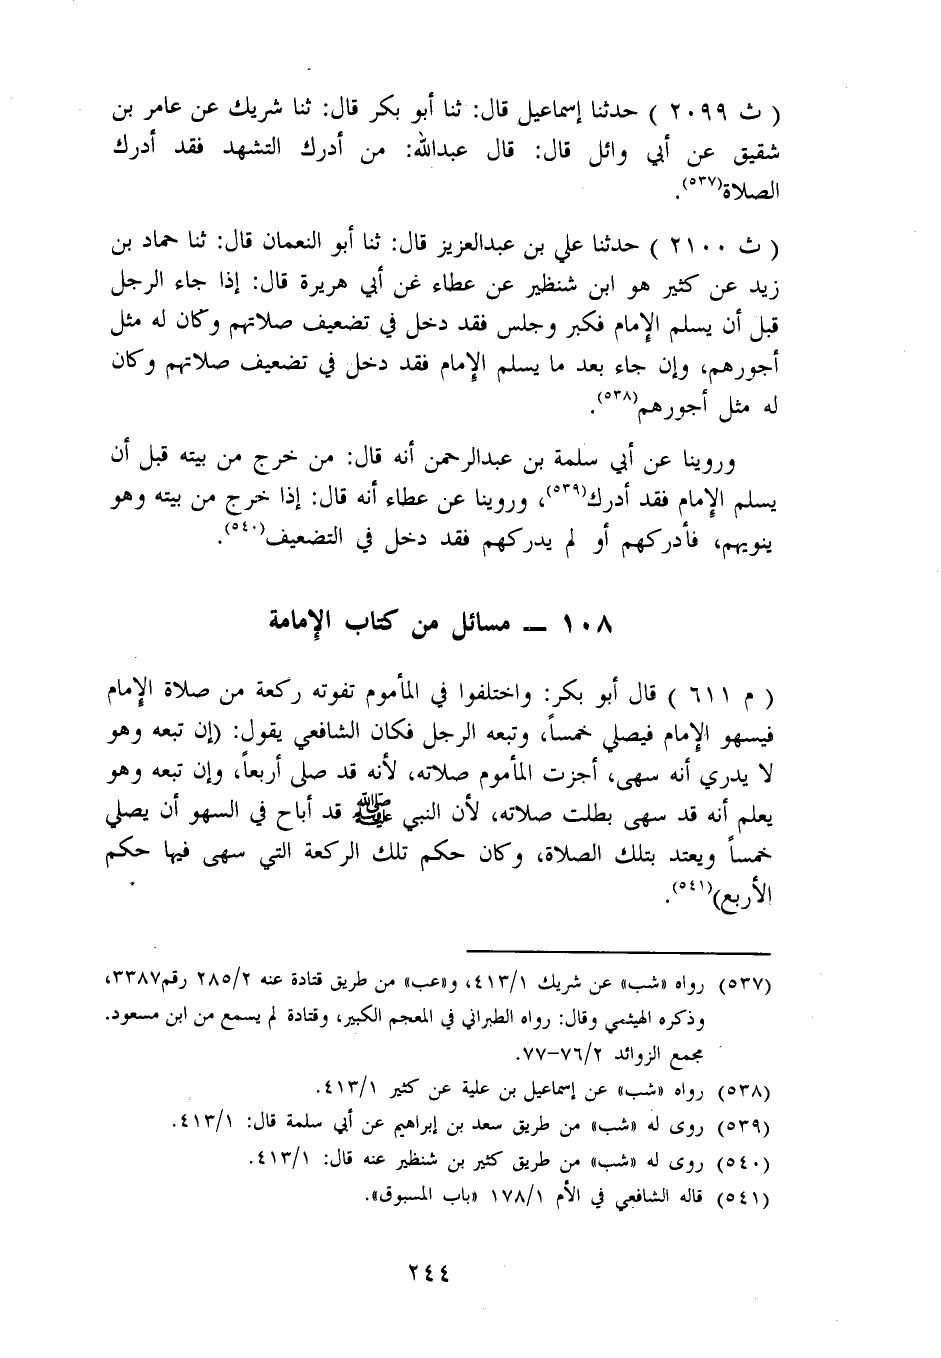 ( ث ٢٠٩٩ ) حدثنا إسماعيل قال: ثنا أبو بكر قال: ثنا شريك عن عامر بن
شقيق عن أبي وائل قال: قال عبدالله: من أدرك التشهد فقد أدرك
الصلاة(٥٣٧).
( ث ٢١٠٠ ) حدثنا علي بن عبدالعزيز قال: ثنا أبو النعمان قال: ثنا حماد بن
زيد عن كثير هو ابن شنظير عن عطاء غن أبي هريرة قال: إذا جاء الرجل
قبل أن يسلم الإمام فكبر وجلس فقد دخل في تضعيف صلاتهم وكان له مثل
أجورهم، وإن جاء بعد ما يسلم الإمام فقد دخل في تضعيف صلاتهم وكان
له مثل أجورهم(٥٣٨).
وروينا عن أبي سلمة بن عبدالرحمن أنه قال: من خرج من بيته قبل أن
يسلم الإمام فقد أدرك(٥٣٩)، وروينا عن عطاء أنه قال: إذا خرج من بيته وهو
ينويهم، فأدركهم أو لم يدركهم فقد دخل في التضعيف(٥٤٠).
١٠٨ — مسائل من كتاب الإمامة
( م ٦١١ ) قال أبو بكر: واختلفوا في المأموم تفوته ركعة من صلاة الإمام
فيسهو الإمام فيصلي خمساً، وتبعه الرجل فكان الشافعي يقول: (إن تبعه وهو
لا يدري أنه سهى، أجزت المأموم صلاته، لأنه قد صلى أربعاً، وإن تبعه وهو
يعلم أنه قد سهى بطلت صلاته، لأن النبي ﷺ قد أباح في السهو أن يصلي
خمساً ويعتد بتلك الصلاة، وكان حكم تلك الركعة التي سهى فيها حكم
الأربع)(٥٤١).
(٥٣٧) رواه «شب» عن شريك ٤١٣/١، و«عب» من طريق قتادة عنه ٢٨٥/٢ رقم٣٣٨٧،
وذكره الهيثمي وقال: رواه الطبراني في المعجم الكبير، وقتادة لم يسمع من ابن مسعود.
مجمع الزوائد ٧٦/٢–٧٧.
(٥٣٨) رواه «شب» عن إسماعيل بن علية عن كثير ٤١٣/١.
(٥٣٩) روى له «شب» من طريق سعد بن إبراهيم عن أبي سلمة قال: ٤١٣/١.
(٥٤٠) روى له «شب» من طريق كثير بن شنظير عنه قال: ٤١٣/١.
(٥٤١) قاله الشافعي في الأم ١٧٨/١ «باب المسبوق».
٢٤٤